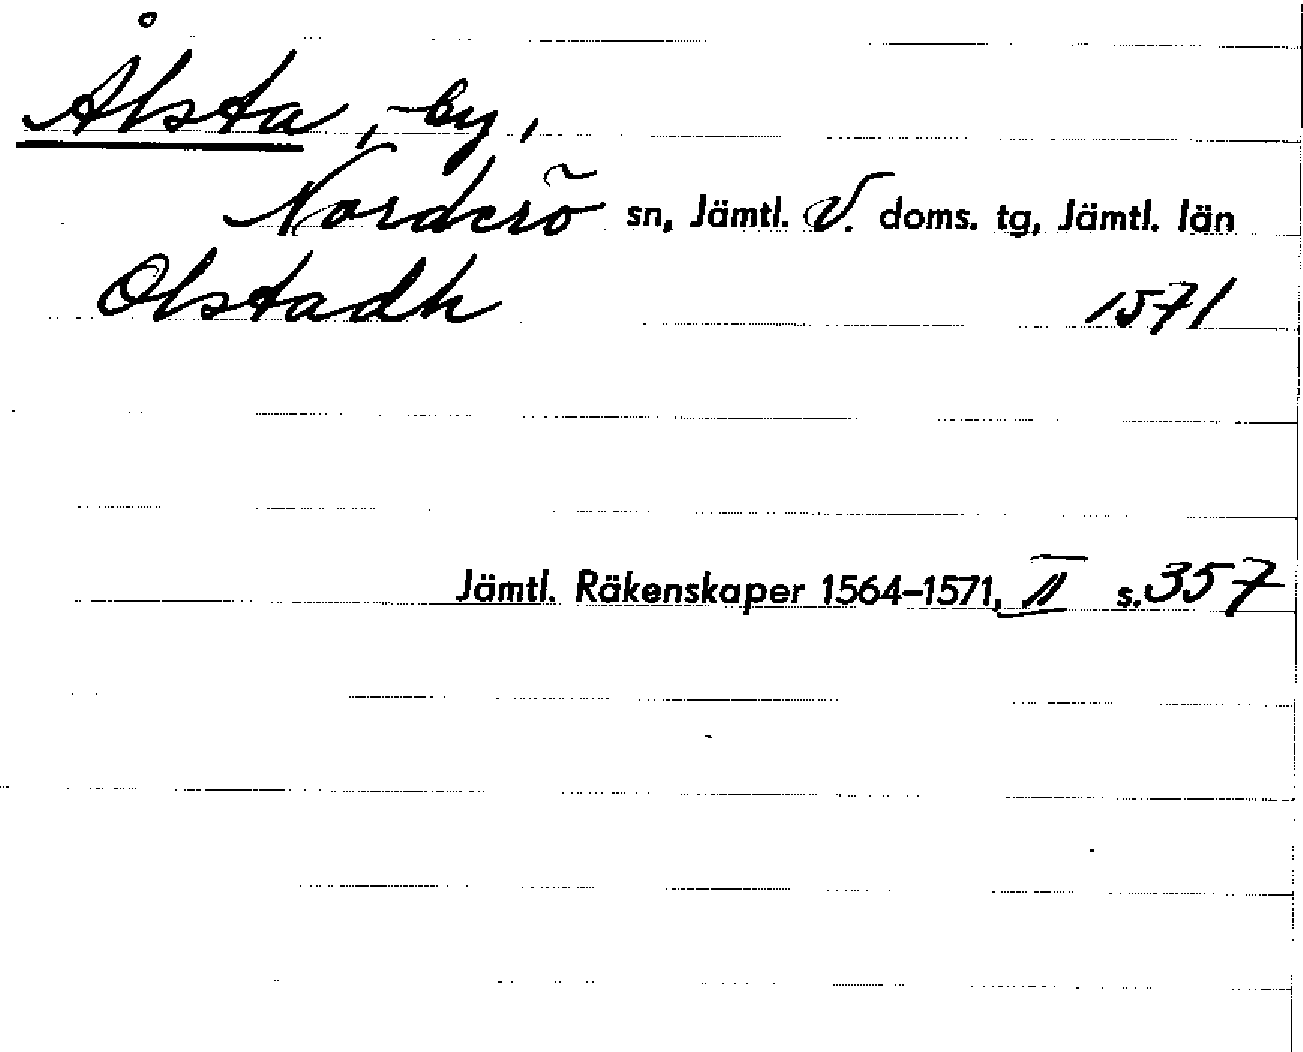 Ålsta, by,
Norderö sn, Jämtl. V. doms. tg, Jämtl. län
Olstadh 1571
Jämtl. Räkenskaper 1564–1571, II s. 357